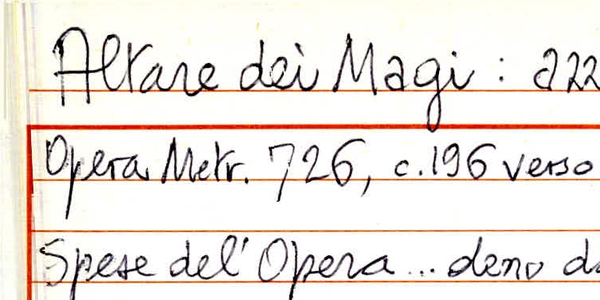 Altare dei Magi : a22
Opera Metr. 726, c.196 verso
Spese del' Opera ... deno da